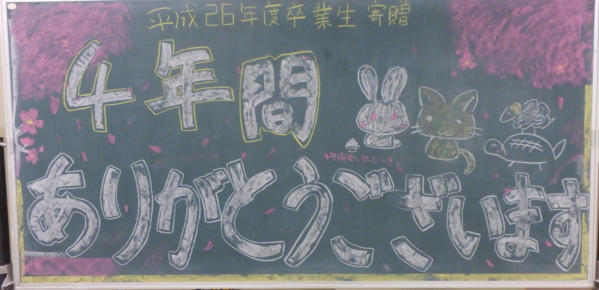 平成26年度卒業生寄贈
4年間
ありがとうございます